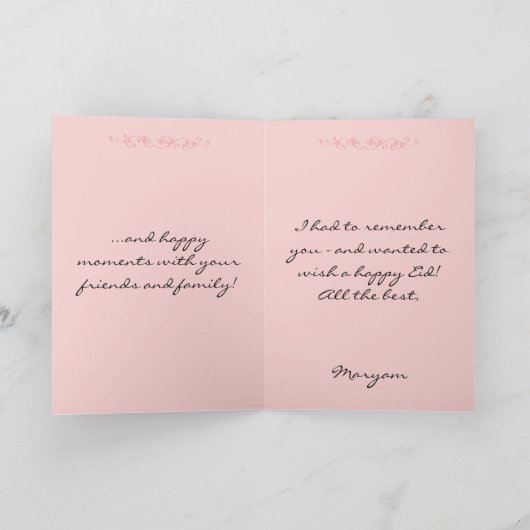 ...and happy
moments with your
friends and family!
I had to remember
you - and wanted to
wish a happy Eid!
All the best,
Maryam